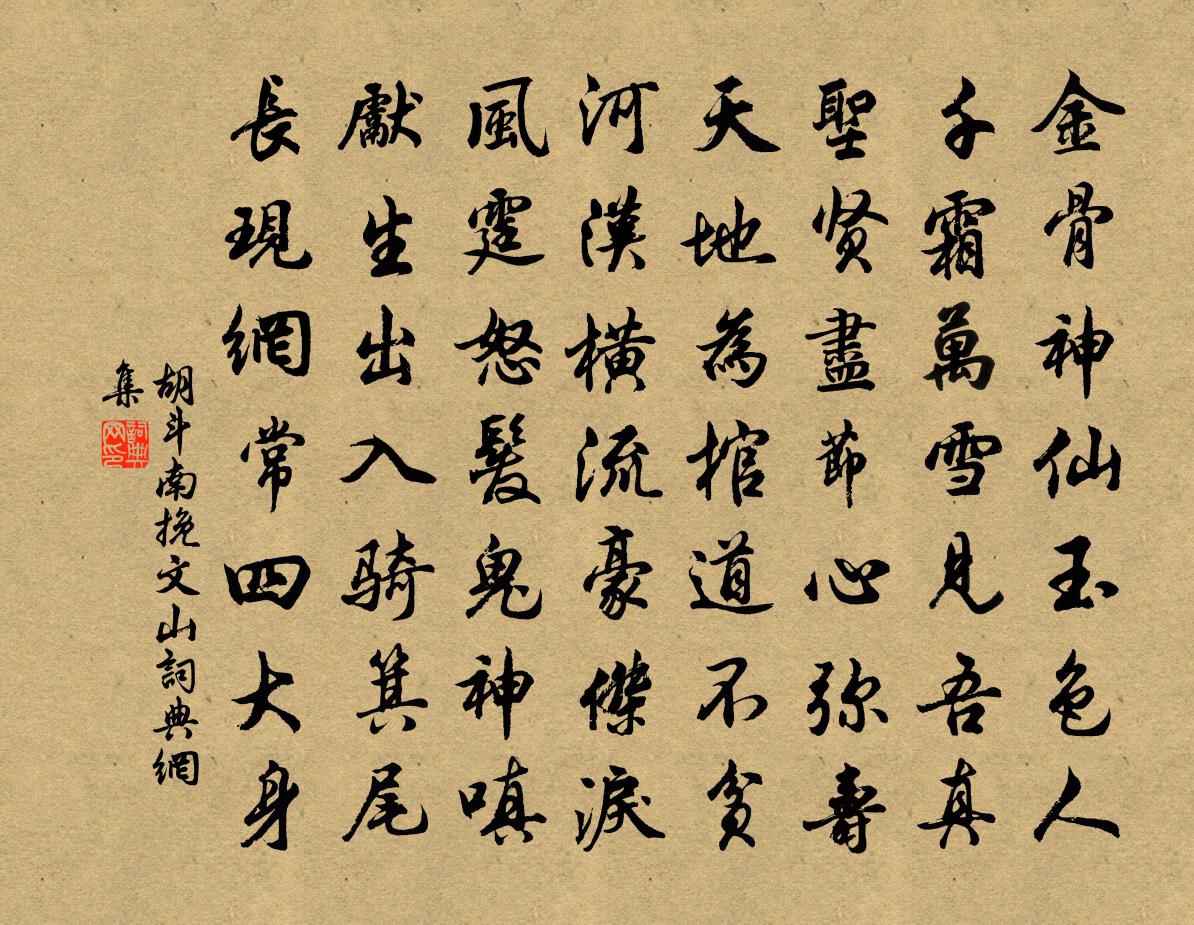 金骨神仙玉色人
千霜萬雪見吾真
聖贤盡節心弥壽
天地為棺道不貧
河漢橫流豪傑淚
風霆怒髮鬼神嗔
獻生出入骑箕尾
長現網常四大身
胡斗南挽文山詞典網
集
詞典网印